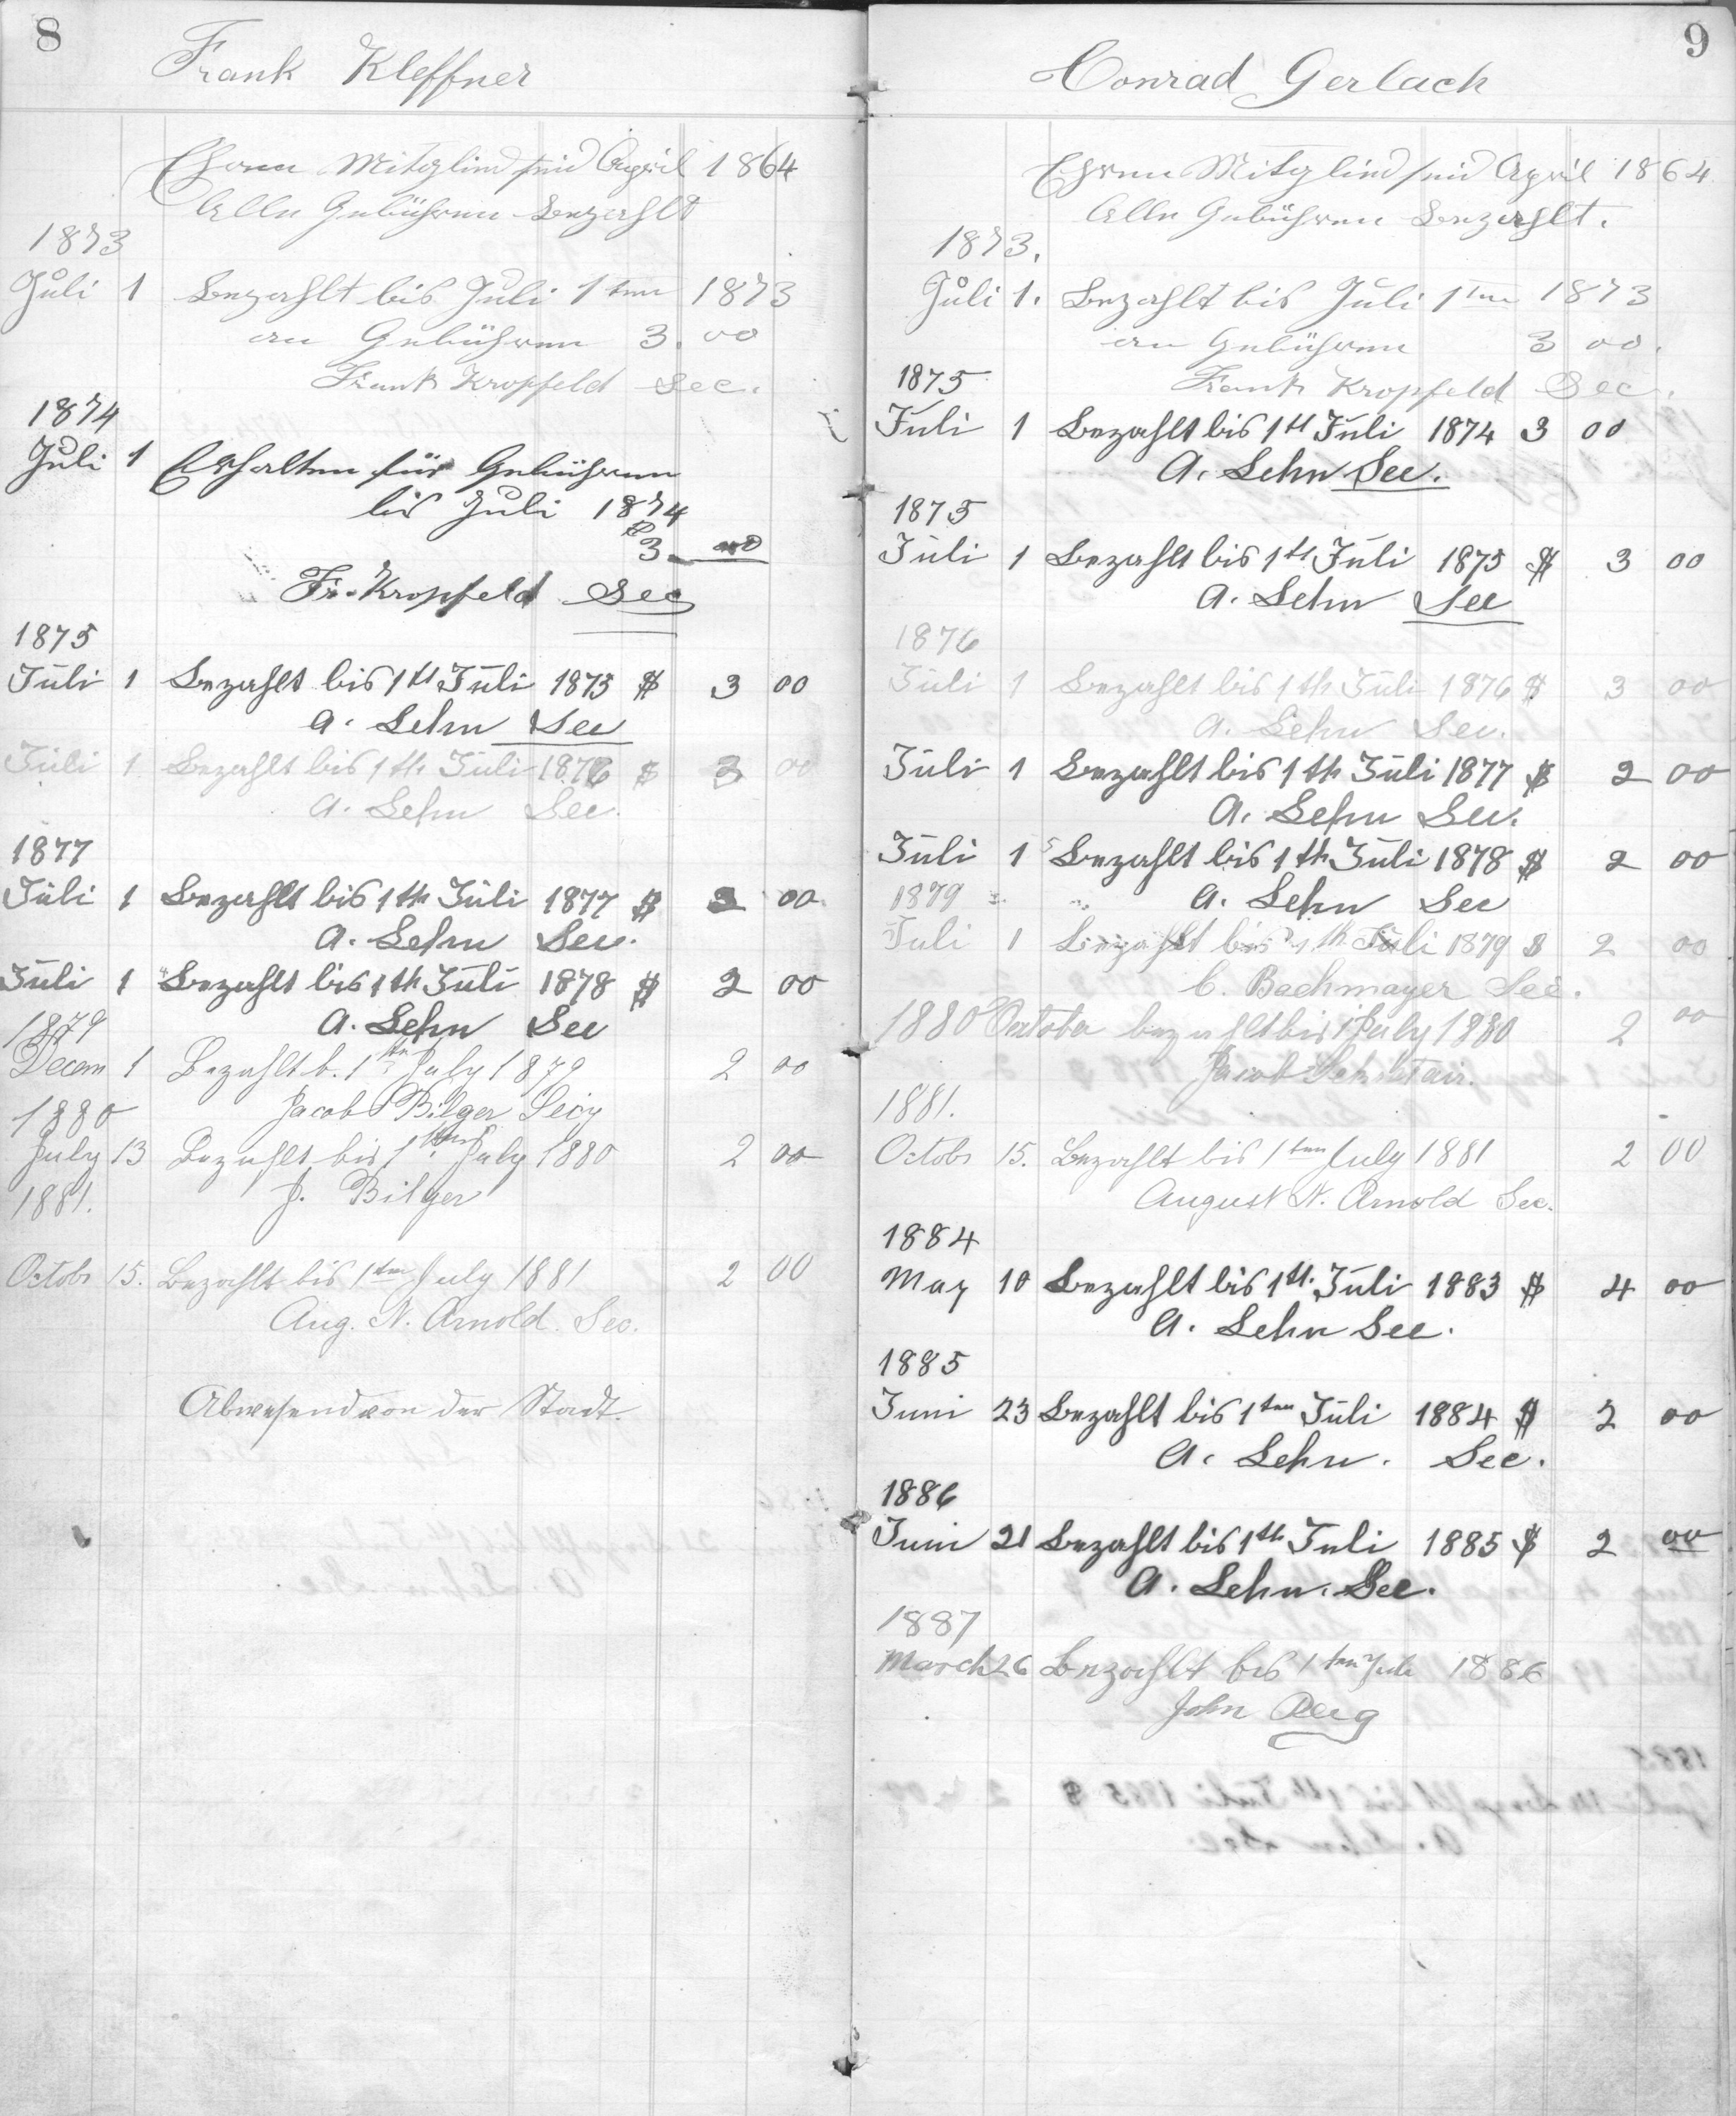 8
Frank Kleffner
Ehren Mitglied seid April 1864
Alle Gebühren bezahlt
1873
Juli 1 bezahlt bis Juli 1ten 1873
an Gebühren 3.00
Frank Kropfeld Sec.
1874
Juli 1 Erhalten für Gebühren
bis Juli 1874
$3.00
Fr. Kropfeld Sec
1875
Juli 1 Bezahlt bis 1th Juli 1875 $ 3 00
A. Lehn Sec
Juli 1 Bezahlt bis 1th Juli 1876 $ 3 00
A. Lehn Sec.
1877
Juli 1 Bezahlt bis 1th Juli 1877 $ 2 00
A. Lehn Sec.
Juli 1 Bezahlt bis 1th Juli 1878 $ 2 00
A. Lehn Sec
1879
Decem 1 Bezahlt b. 1ten July 1879 2 00
Jacob Bilger Secy
1880
July 13 Bezahlt bis 1ten July 1880 2 00
J. Bilger
1881.
Octobr 15. Bezahlt bis 1ten July 1881 2 00
Aug. N. Arnold Sec.
Abwesend von der Stadt.
9
Conrad Gerlach
Ehren Mitglied seid April 1864
Alle Gebühren bezahlt.
1873.
Juli 1. bezahlt bis Juli 1ten 1873
an Gebühren 3 00.
Frank Kropfeld Sec.
1875
Juli 1 Bezahlt bis 1th Juli 1874 3 00
A. Lehn Sec.
1875
Juli 1 Bezahlt bis 1th Juli 1875 $ 3 00
A. Lehn Sec
1876
Juli 1 Bezahlt bis 1th Juli 1876 $ 3 00
A. Lehn Sec.
Juli 1 Bezahlt bis 1th Juli 1877 $ 2 00
A. Lehn Sec.
Juli 1 Bezahlt bis 1th Juli 1878 $ 2 00
1879 A. Lehn Sec
Juli 1 Bezahlt bis 1th Juli 1879 $ 2 00
C. Bachmayer Sec.
1880 October bezahlt bis 1 July 1880 2 00
Jacob
1881.
Octobr 15. Bezahlt bis 1ten July 1881 2 00
August N. Arnold Sec.
1884
May 10 Bezahlt bis 1th Juli 1883 $ 4 00
A. Lehn Sec.
1885
Juni 23 Bezahlt bis 1ten Juli 1884 $ 2 00
A. Lehn. Sec.
1886
Juni 21 Bezahlt bis 1th Juli 1885 $ 2 00
A. Lehn. Sec.
1887
March 26 Bezahlt bis 1ten Juli 1886
John